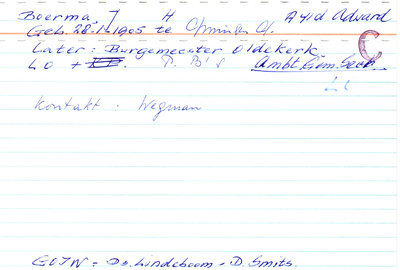 Boerma, J H A 41d Adward
Geb. 28.1.1905 te Opmind
Later: Burgemeester Oldekerk C
LO + P. B's Ambt. Gem. Secr.
Kontakt. Wegman
GOIW = Ds. Lindeboom - D. Smits.